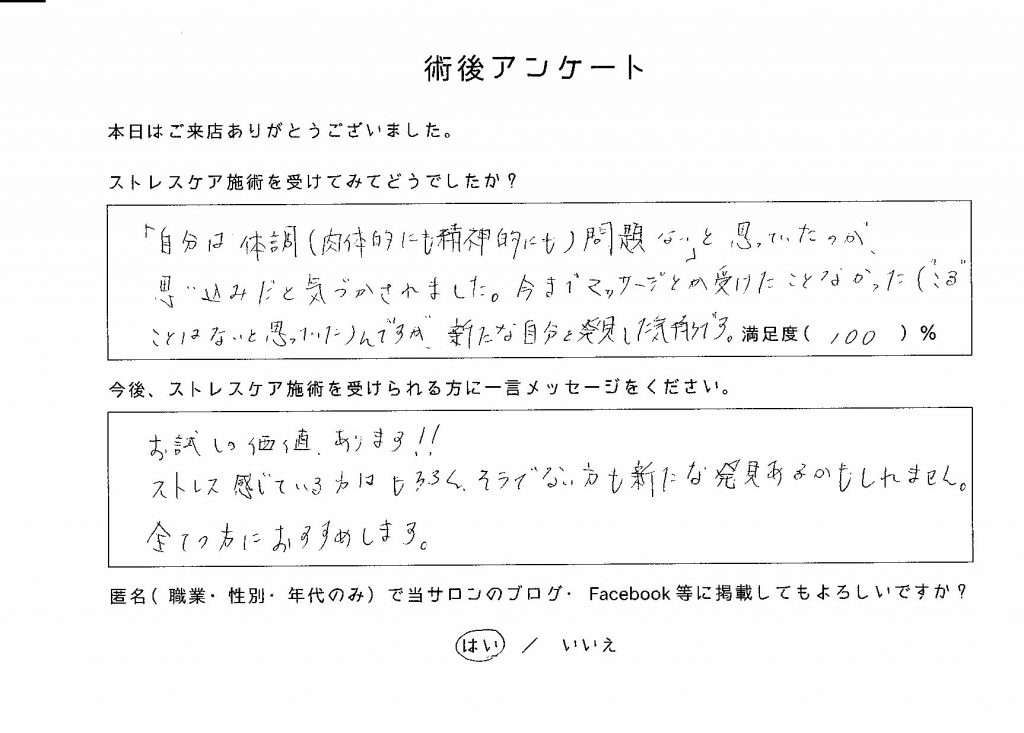 術後アンケート
本日はご来店ありがとうございました。
ストレスケア施術を受けてみてどうでしたか？
「自分は体調(肉体的にも精神的にも)問題ない」と思っていたのが、
思い込みだと気づかされました。今までマッサージとか受けたことなかった(こる
ことはないと思っていた)んですが、新たな自分を発見した気持ちです。満足度( 100 )%
今後、ストレスケア施術を受けられる方に一言メッセージをください。
お試しの価値、あります!!
ストレス感じている方はもちろん、そうでない方も新たな発見あるかもしれません。
全ての方におすすめします。
匿名(職業・性別・年代のみ)で当サロンのブログ・Facebook等に掲載してもよろしいですか？
はい / いいえ